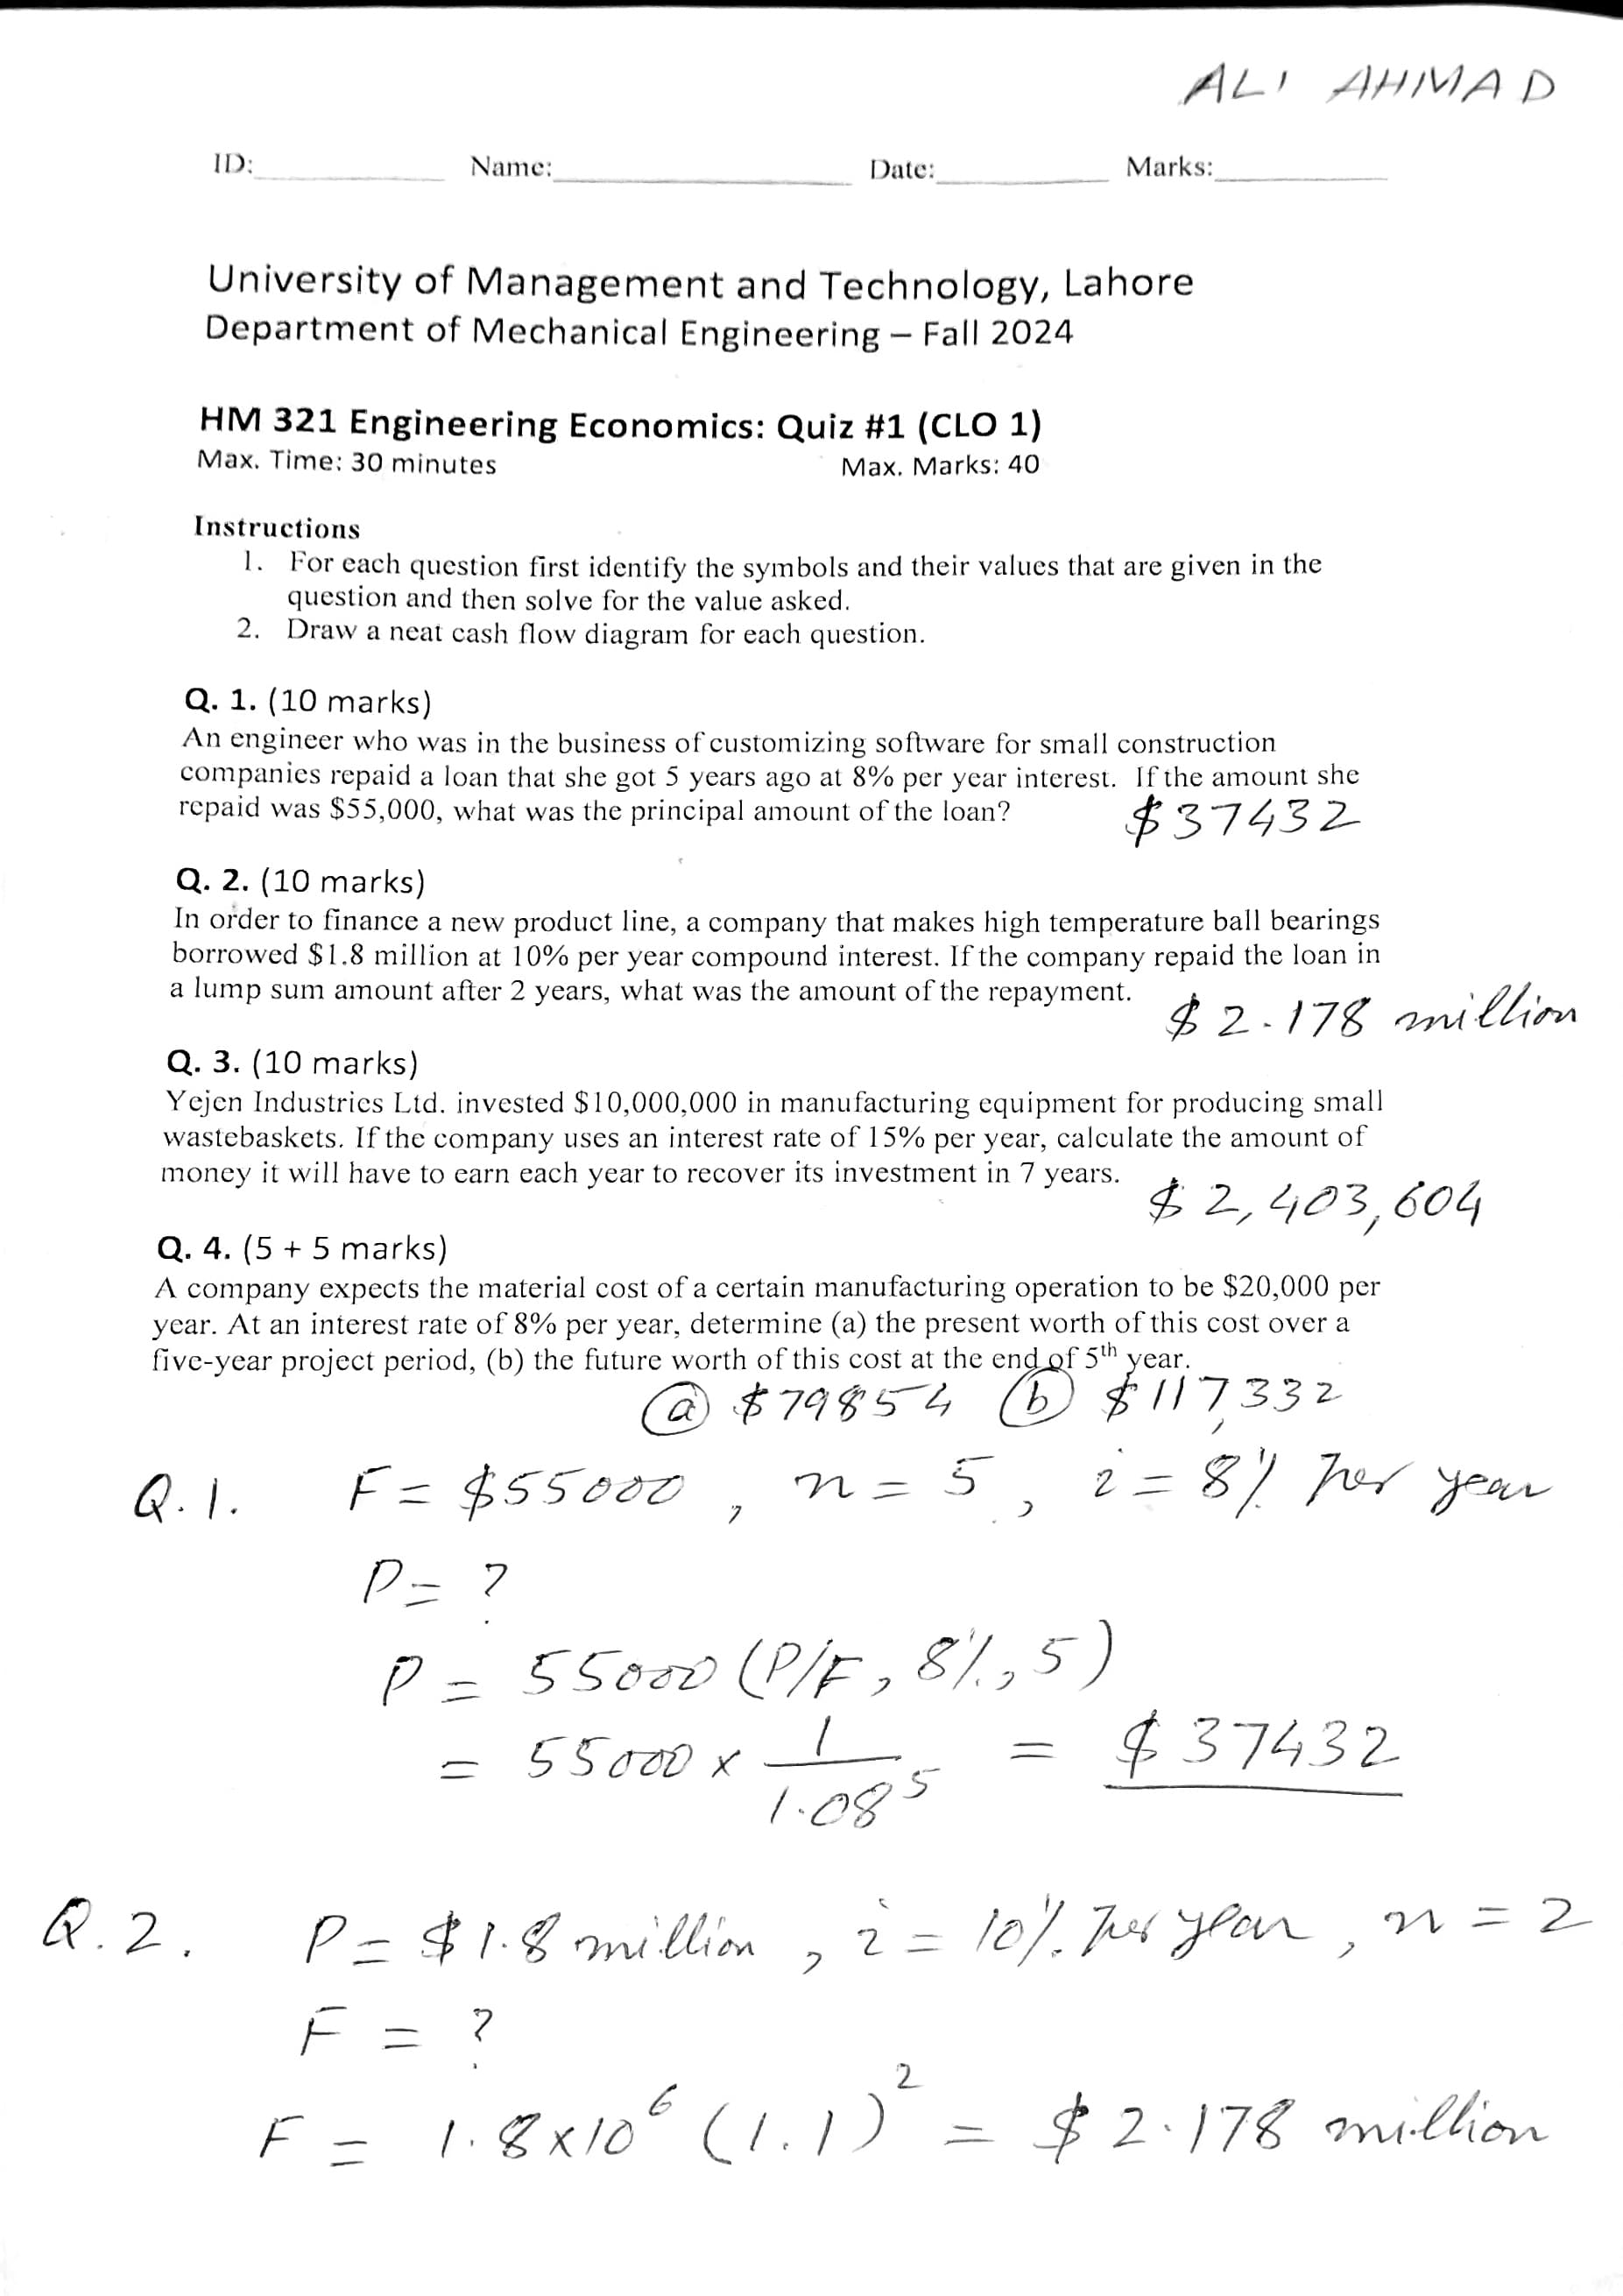 ALI AHMAD
ID:__________ Name:__________ Date:__________ Marks:__________
University of Management and Technology, Lahore
Department of Mechanical Engineering – Fall 2024
HM 321 Engineering Economics: Quiz #1 (CLO 1)
Max. Time: 30 minutes Max. Marks: 40
Instructions
1. For each question first identify the symbols and their values that are given in the
question and then solve for the value asked.
2. Draw a neat cash flow diagram for each question.
Q. 1. (10 marks)
An engineer who was in the business of customizing software for small construction
companies repaid a loan that she got 5 years ago at 8% per year interest. If the amount she
repaid was $55,000, what was the principal amount of the loan?
$37432
Q. 2. (10 marks)
In order to finance a new product line, a company that makes high temperature ball bearings
borrowed $1.8 million at 10% per year compound interest. If the company repaid the loan in
a lump sum amount after 2 years, what was the amount of the repayment.
$2.178 million
Q. 3. (10 marks)
Yejen Industries Ltd. invested $10,000,000 in manufacturing equipment for producing small
wastebaskets. If the company uses an interest rate of 15% per year, calculate the amount of
money it will have to earn each year to recover its investment in 7 years.
$2,403,604
Q. 4. (5 + 5 marks)
A company expects the material cost of a certain manufacturing operation to be $20,000 per
year. At an interest rate of 8% per year, determine (a) the present worth of this cost over a
five-year project period, (b) the future worth of this cost at the end of 5th year.
(a) $79854 (b) $117,332
Q.1. F = $55000, n = 5, i = 8% per year
P = ?
P = 55000 (P/F, 8%, 5)
= 55000 x 1/1.08^5 = $37432
Q.2. P = $1.8 million, i = 10% per year, n = 2
F = ?
F = 1.8x10^6 (1.1)^2 = $2.178 million